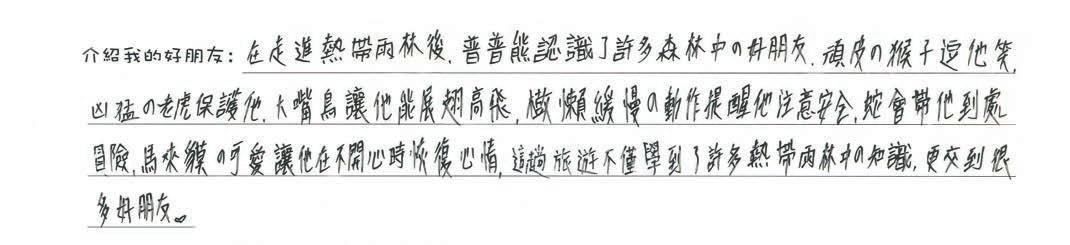 介紹我的好朋友：在走進熱帶雨林後，普普熊認識了許多森林中の好朋友，頑皮の猴子逗他笑，
凶猛の老虎保護他，大嘴鳥讓他能展翅高飛，樹懶緩慢の動作提醒他注意安全，蛇會帶他到處
冒險，馬來貘の可愛讓他在不開心時恢復心情，這趟旅遊不僅學到了許多熱帶雨林中の知識，更交到很
多好朋友。